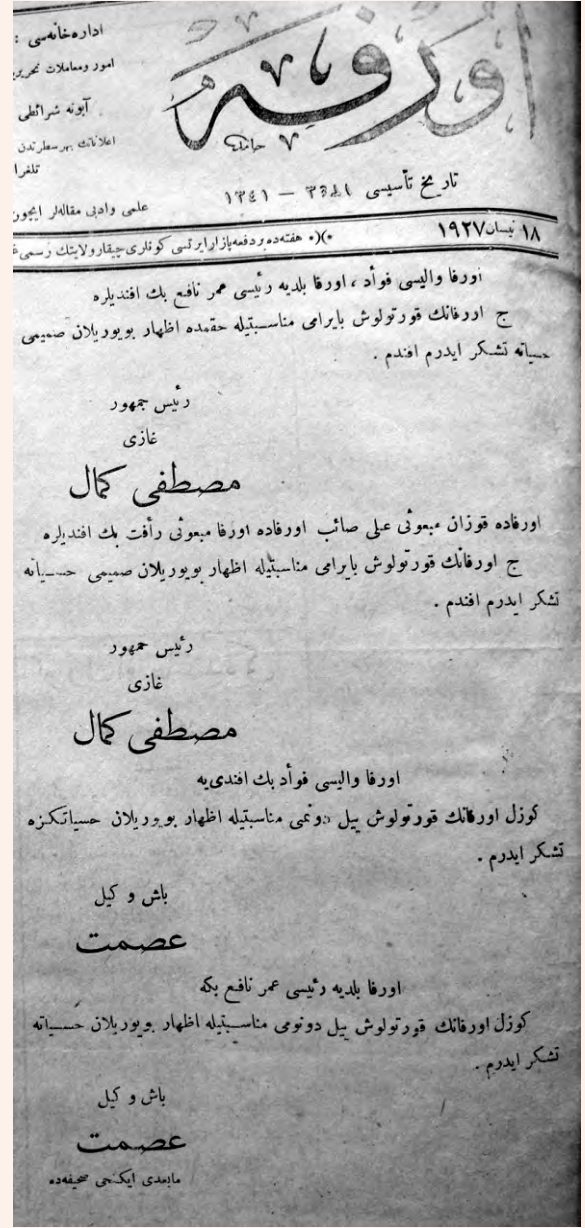 اداره خانه‌سی :
امور ومعاملات تحریریه
آبونه شرائطی
اعلاناتك بهر سطرندن
تلغرا
علمی وادبی مقاله‌لر ایچون
اورفه
تاریخ تأسیسی ١٣٤١ — ١٣٤١
١٨ نیسان ١٩٢٧
هفته‌ده بر دفعه پازار ایرتسی كونلری چیقار ولایتك رسمی غ
اورفا والیسی فوأد ، اورفا بلدیه رئیسی عمر نافع بك افندیلره
ج اورفانك قورتولوش بایرامی مناسبتیله حقمده اظهار بویوریلان صمیمی
حسیاته تشكر ایدرم افندم .
رئیس جمهور
غازی
مصطفی كمال
اورفاده قوزان مبعوثی علی صائب اورفاده اورفا مبعوثی رأفت بك افندیلره
ج اورفانك قورتولوش بایرامی مناسبتیله اظهار بویوریلان صمیمی حسیاته
تشكر ایدرم افندم .
رئیس جمهور
غازی
مصطفی كمال
اورفا والیسی فوأد بك افندی‌یه
كوزل اورفانك قورتولوش ییل دونمی مناسبتیله اظهار بویوریلان حسیاتكزه
تشكر ایدرم .
باش وكیل
عصمت
اورفا بلدیه رئیسی عمر نافع بكه
كوزل اورفانك قورتولوش ییل دونومی مناسبتیله اظهار بویوریلان حسیاته
تشكر ایدرم .
باش وكیل
عصمت
مابعدی ایكنجی صحیفه‌ده